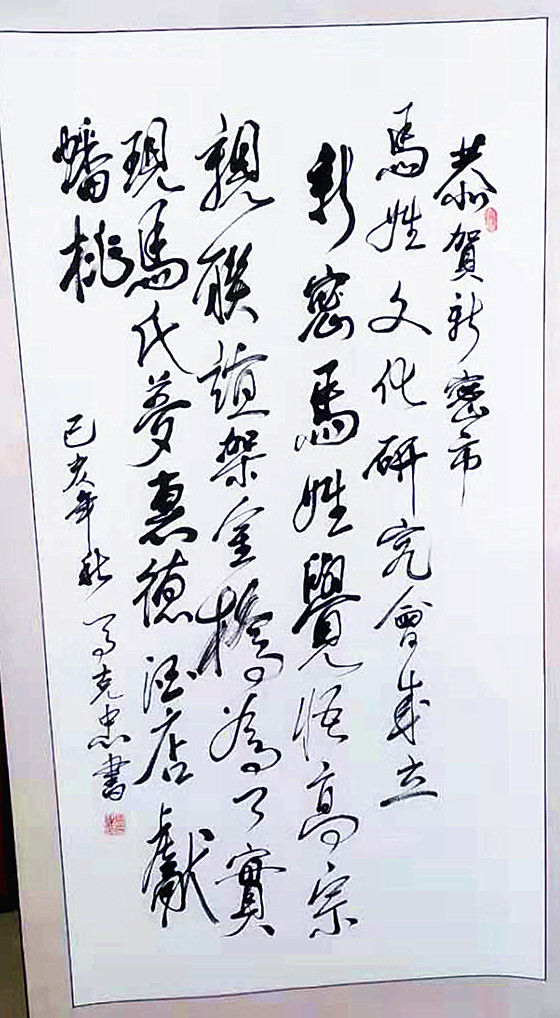 恭賀新密市
馬姓文化研究會成立
新密馬姓覺悟高宗
親聯誼架金橋為了實
現馬氏夢惠德酒店獻
蟠桃
己亥年秋馬克忠書